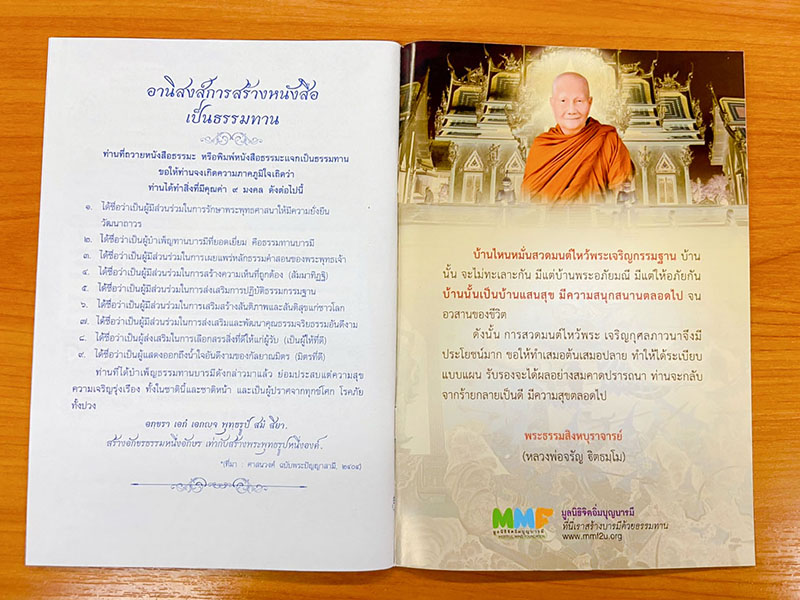 อานิสงส์การสร้างหนังสือ
เป็นธรรมทาน
ท่านที่ถวายหนังสือธรรมะ หรือพิมพ์หนังสือธรรมะแจกเป็นธรรมทาน
ขอให้ท่านจงเกิดความภาคภูมิใจเถิดว่า
ท่านได้ทำสิ่งที่มีคุณค่า ๙ มงคล ดังต่อไปนี้
๑. ได้ชื่อว่าเป็นผู้มีส่วนร่วมในการรักษาพระพุทธศาสนาให้มีความยั่งยืน
วัฒนาถาวร
๒. ได้ชื่อว่าเป็นผู้บำเพ็ญทานบารมีที่ยอดเยี่ยม คือธรรมทานบารมี
๓. ได้ชื่อว่าเป็นผู้มีส่วนร่วมในการเผยแพร่หลักธรรมคำสอนของพระพุทธเจ้า
๔. ได้ชื่อว่าเป็นผู้มีส่วนร่วมในการสร้างความเห็นที่ถูกต้อง (สัมมาทิฏฐิ)
๕. ได้ชื่อว่าเป็นผู้มีส่วนร่วมในการส่งเสริมการปฏิบัติธรรมกรรมฐาน
๖. ได้ชื่อว่าเป็นผู้มีส่วนร่วมในการเสริมสร้างสันติภาพและสันติสุขแก่ชาวโลก
๗. ได้ชื่อว่าเป็นผู้มีส่วนร่วมในการส่งเสริมและพัฒนาคุณธรรมจริยธรรมอันดีงาม
๘. ได้ชื่อว่าเป็นผู้ส่งเสริมในการเลือกสรรสิ่งที่ดีให้แก่ผู้รับ (เป็นผู้ให้ที่ดี)
๙. ได้ชื่อว่าเป็นผู้แสดงออกถึงน้ำใจอันดีงามของกัลยาณมิตร (มิตรที่ดี)
ท่านที่ได้บำเพ็ญธรรมทานบารมีดังกล่าวมาแล้ว ย่อมประสบแต่ความสุข
ความเจริญรุ่งเรือง ทั้งในชาตินี้และชาติหน้า และเป็นผู้ปราศจากทุกข์โศก โรคภัย
ทั้งปวง
อกฺขรา เอกํ เอกญฺจ พุทฺธรูปํ สมํ สิยา.
สร้างอักษรธรรมหนึ่งอักษร เท่ากับสร้างพระพุทธรูปหนึ่งองค์.
*(ที่มา : ศาสนวงศ์ ฉบับพระปัญญาสามี, ๒๔๐๔)
บ้านไหนหมั่นสวดมนต์ไหว้พระเจริญกรรมฐาน บ้าน
นั้น จะไม่ทะเลาะกัน มีแต่บ้านพระอภัยมณี มีแต่ให้อภัยกัน
บ้านนั้นเป็นบ้านแสนสุข มีความสนุกสนานตลอดไป จน
อวสานของชีวิต
ดังนั้น การสวดมนต์ไหว้พระ เจริญกุศลภาวนาจึงมี
ประโยชน์มาก ขอให้ทำเสมอต้นเสมอปลาย ทำให้ได้ระเบียบ
แบบแผน รับรองจะได้ผลอย่างสมคาดปรารถนา ท่านจะกลับ
จากร้ายกลายเป็นดี มีความสุขตลอดไป
พระธรรมสิงหบุราจารย์
(หลวงพ่อจรัญ ฐิตธมฺโม)
MMF
มูลนิธิจิตอิ่มบุญบารมี
มูลนิธิจิตอิ่มบุญบารมี
ที่นี่เราสร้างบารมีด้วยธรรมทาน
www.mmf2u.org